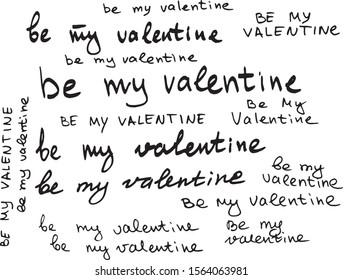 be my valentine
be my valentine
BE MY
VALENTINE
be my valentine
be my valentine
Be My
Valentine
BE MY VALENTINE
be my valentine
be my valentine
be my
valentine
Be my Valentine
BE MY VALENTINE
Be my valentine
be my valentine
be my valentine
Be my
valentine
shutterstock.com · 1564063981